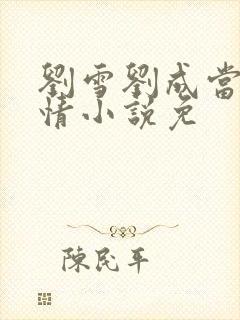 劉雪劉成當
情小說免
陳民平